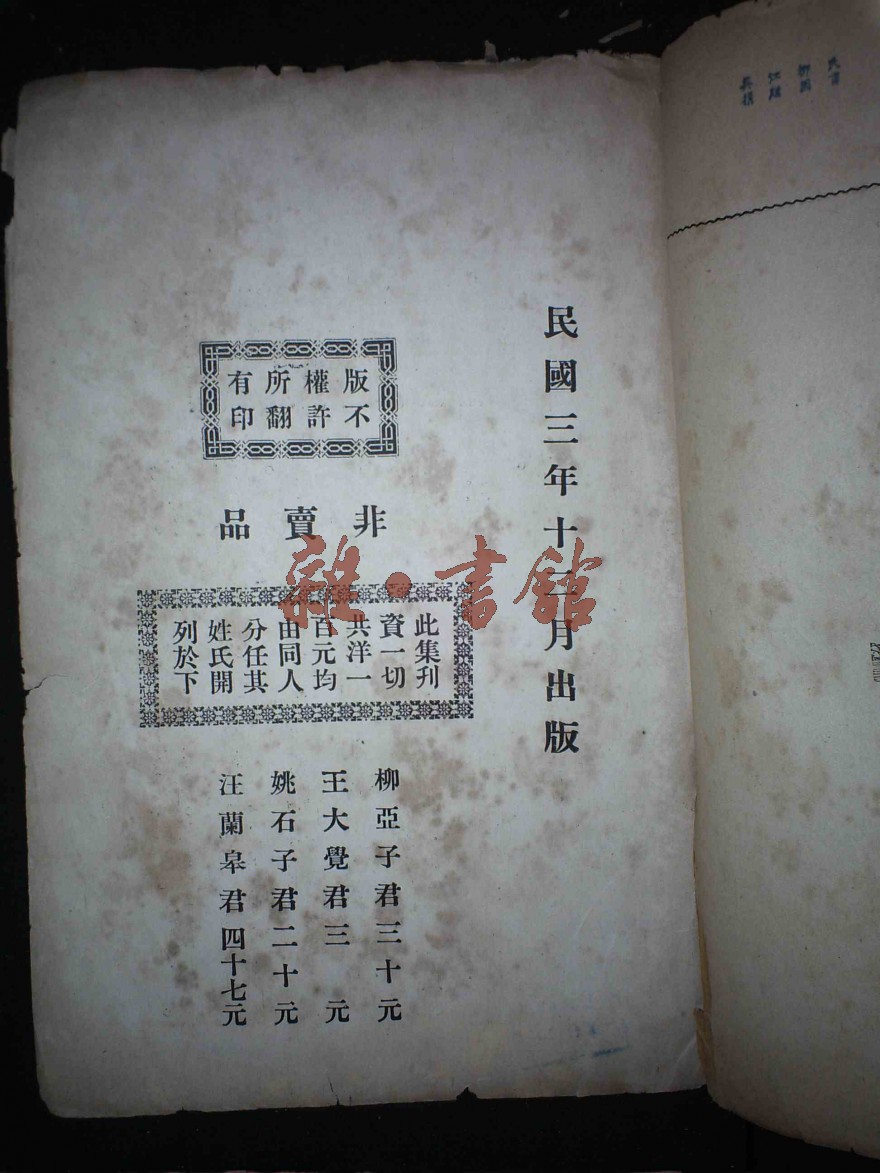 吳江柳氏
捐贈圖書
民國三年十二月出版
版權所有
不許翻印
非賣品
此集刊
資一切
共洋一
百元均
由同人
分任其
姓氏開
列於下
柳亞子君三十元
王大覺君三元
姚石子君二十元
汪蘭皋君四十七元
雜·書館